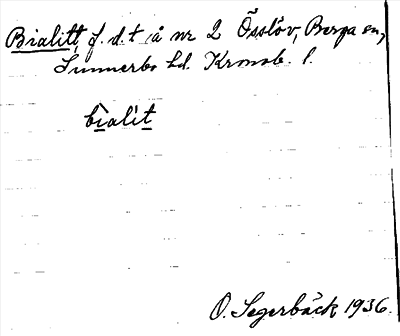 Bialitt, f. d. t å nr 2 Össlöv, Berga sn,
Sunnerbo hd. Kronob. l.
bialit
O. Segerbäck 1936.